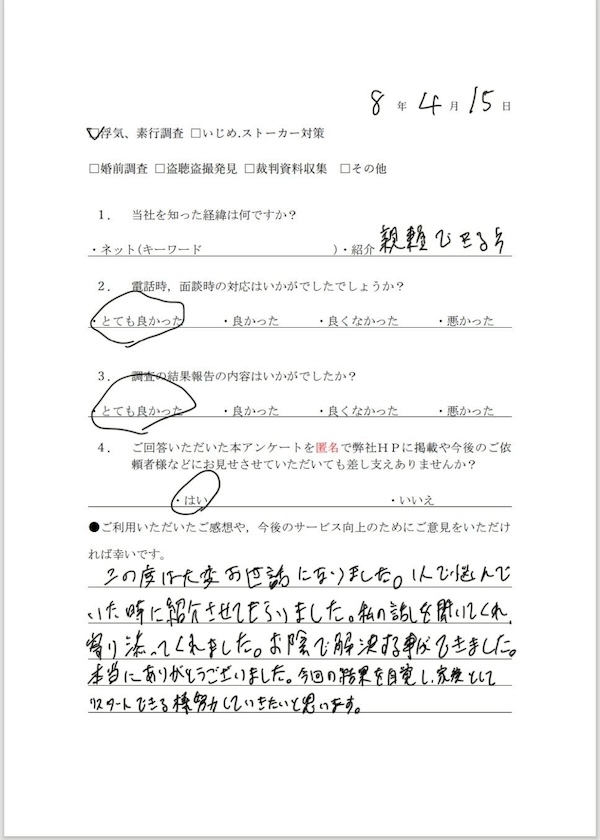 8 年 4 月 15 日
☑浮気、素行調査 □いじめ.ストーカー対策
□婚前調査 □盗聴盗撮発見 □裁判資料収集 □その他
１． 当社を知った経緯は何ですか？
・ネット(キーワード )・紹介 親頼できる方
２． 電話時，面談時の対応はいかがでしたでしょうか？
・とても良かった ・良かった ・良くなかった ・悪かった
３． 調査の結果報告の内容はいかがでしたか？
・とても良かった ・良かった ・良くなかった ・悪かった
４． ご回答いただいた本アンケートを匿名で弊社ＨＰに掲載や今後のご依
頼者様などにお見せさせていただいても差し支えありませんか？
・はい ・いいえ
●ご利用いただいたご感想や，今後のサービス向上のためにご意見をいただけ
れば幸いです。
この度は大変お世話になりました。1人で悩んで
いた時に紹介させてもらいました。私の話しを聞いてくれ、
寄り添ってくれました。お陰で解決する事ができました。
本当にありがとうございました。今回の結果を自覚し、家族として
リスタートできる様努力していきたいと思います。